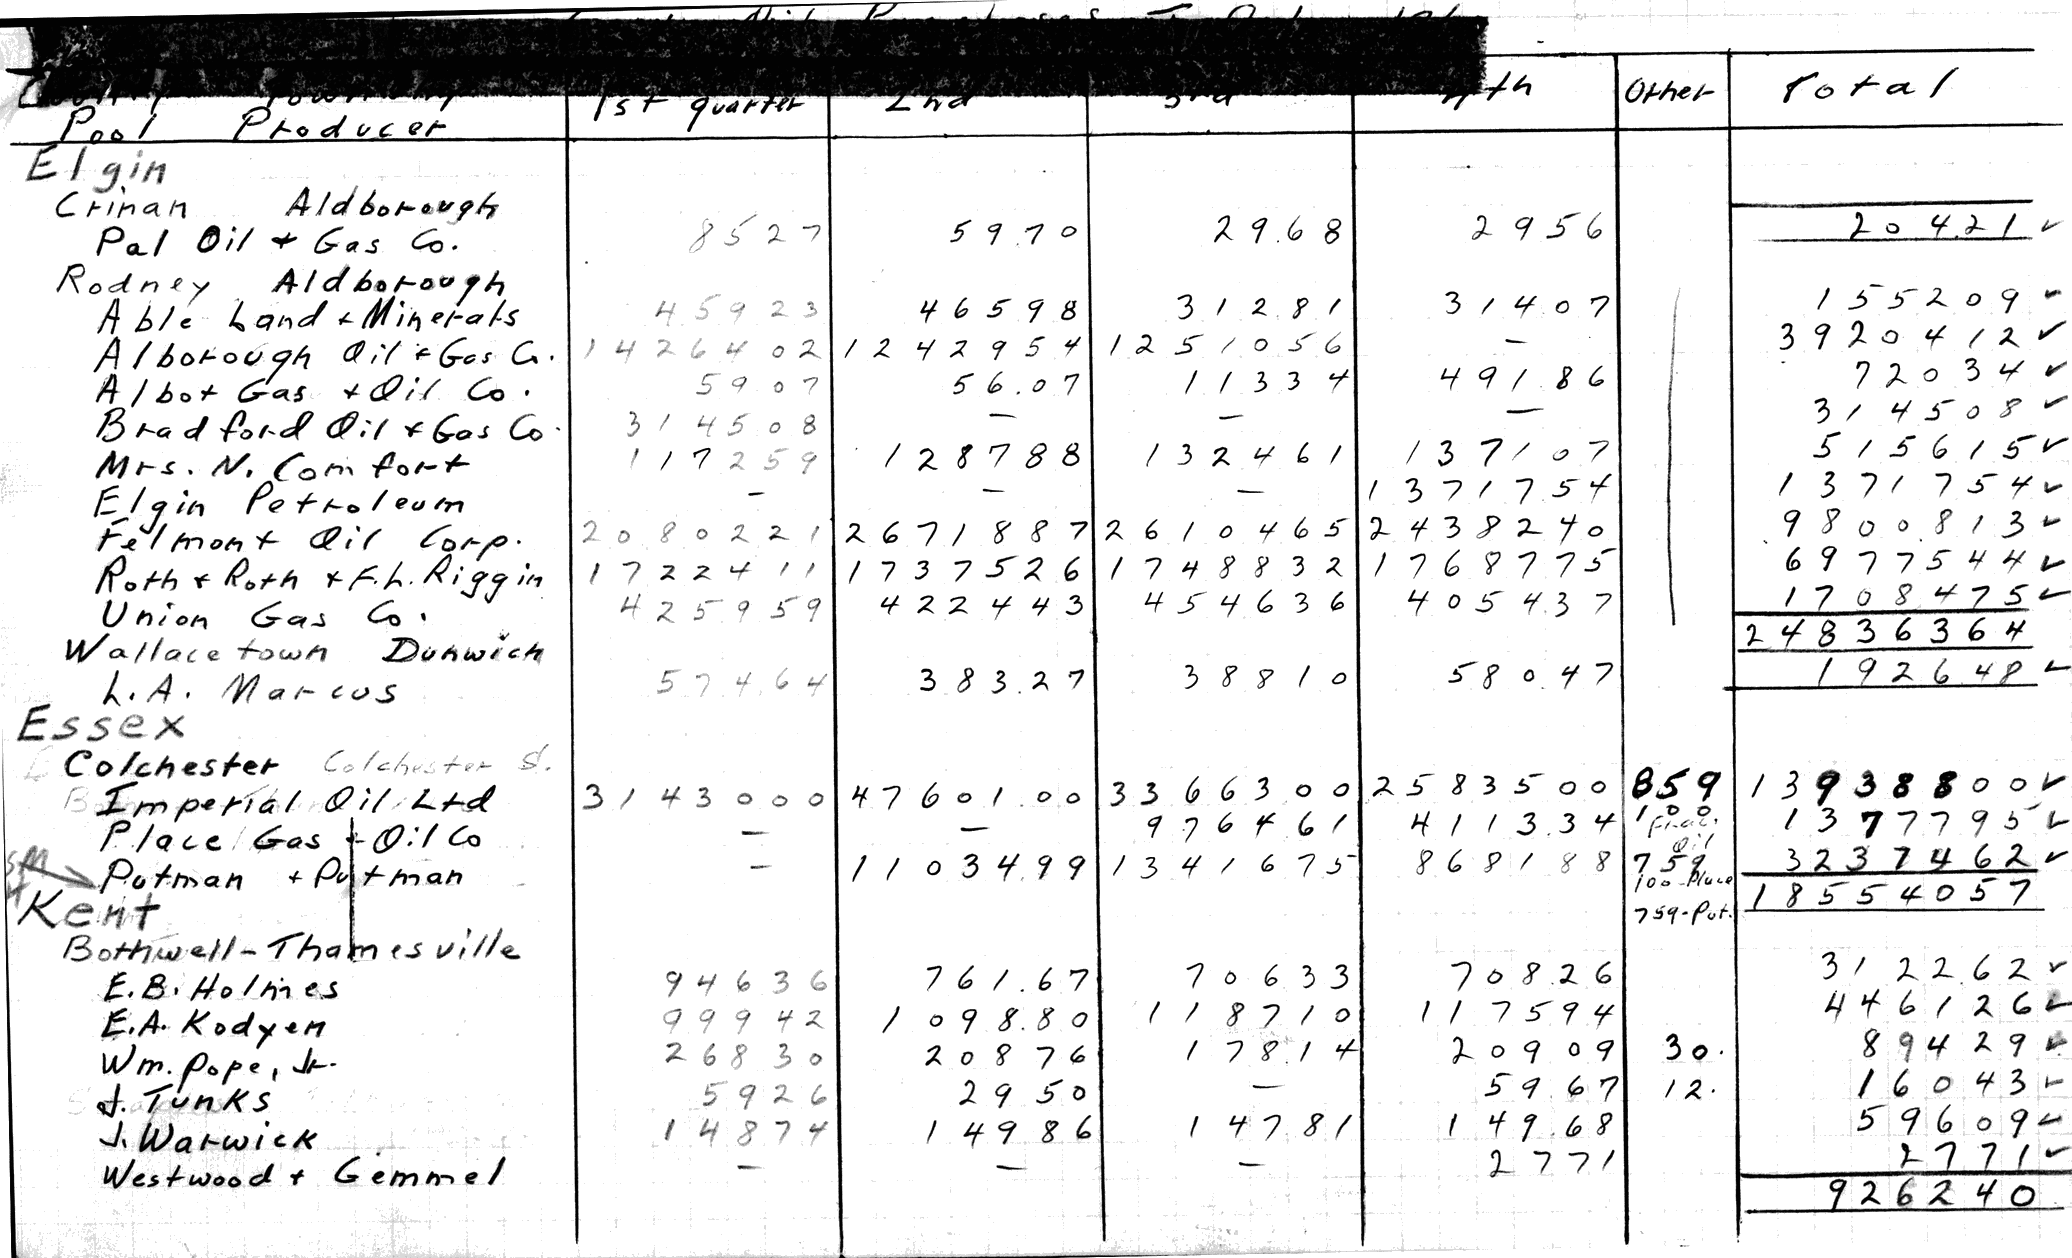 Pool Producer 1st quarter 2nd 3rd 4th Other Total
Elgin
Crinan Aldborough
Pal Oil + Gas Co. 8527 59.70 29.68 2956 204.21 ✓
Rodney Aldborough
Able Land + Minerals 45923 46598 31281 31407 155209 ✓
Alborough Oil + Gas Co. 1426402 1242954 1251056 — 3920412 ✓
Albot Gas + Oil Co. 5907 56.07 11334 491.86 72034 ✓
Bradford Oil + Gas Co. 314508 — — — 314508 ✓
Mrs. N. Comfort 117259 128788 132461 137107 515615 ✓
Elgin Petroleum — — — 1371754 1371754 ✓
Felmont Oil Corp. 2080221 2671887 2610465 2438240 9800813 ✓
Roth + Roth + F.L. Riggin 1722411 1737526 1748832 1768775 6977544 ✓
Union Gas Co. 425959 422443 454636 405437 1708475 ✓
24836364
Wallacetown Dunwich
L.A. Marcus 574.64 383.27 38810 580.47 192648 ✓
Essex
Colchester Colchester S.
Imperial Oil Ltd 3143000 47601.00 3366300 2583500 859 13938800 ✓
Place Gas + Oil Co — — 976461 4113.34 100 1377795 ✓
Oil
Putman + Putman — 1103499 1341675 868188 759 3237462 ✓
100-Place
Kent 759-Put. 18554057
Bothwell-Thamesville
E.B. Holmes 94636 761.67 70633 70826 312262 ✓
E.A. Kodyen 99942 1098.80 118710 117594 446126 ✓
Wm. Pope, Jr. 26830 20876 178.14 20909 30. 89429 ✓
J. Tunks 5926 2950 — 5967 12. 16043 ✓
J. Warwick 14874 14986 14781 149.68 59609 ✓
Westwood + Gemmel — — — 2771 2771 ✓
926240